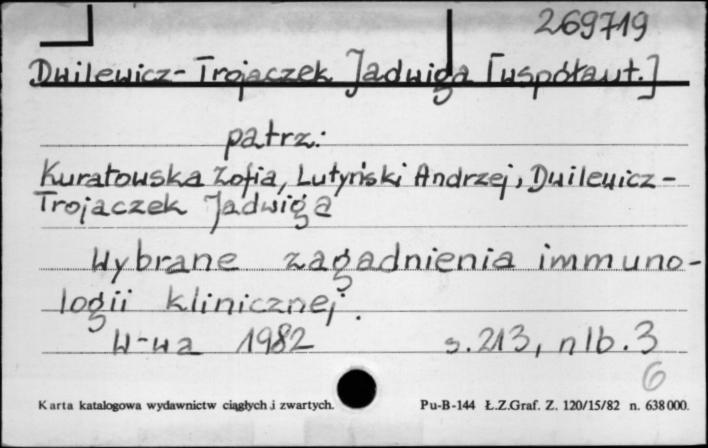 269719
Dwilewicz-Trojaczek Jadwiga [współaut.]
patrz:
Kuratowska Zofia, Lutyński Andrzej, Dwilewicz-
Trojaczek Jadwiga
Wybrane zagadnienia immuno-
logii klinicznej.
W-wa 1982 s. 213, nlb. 3
6
Karta katalogowa wydawnictw ciągłych i zwartych. Pu-B-144 Ł.Z.Graf. Z. 120/15/82 n. 638000.